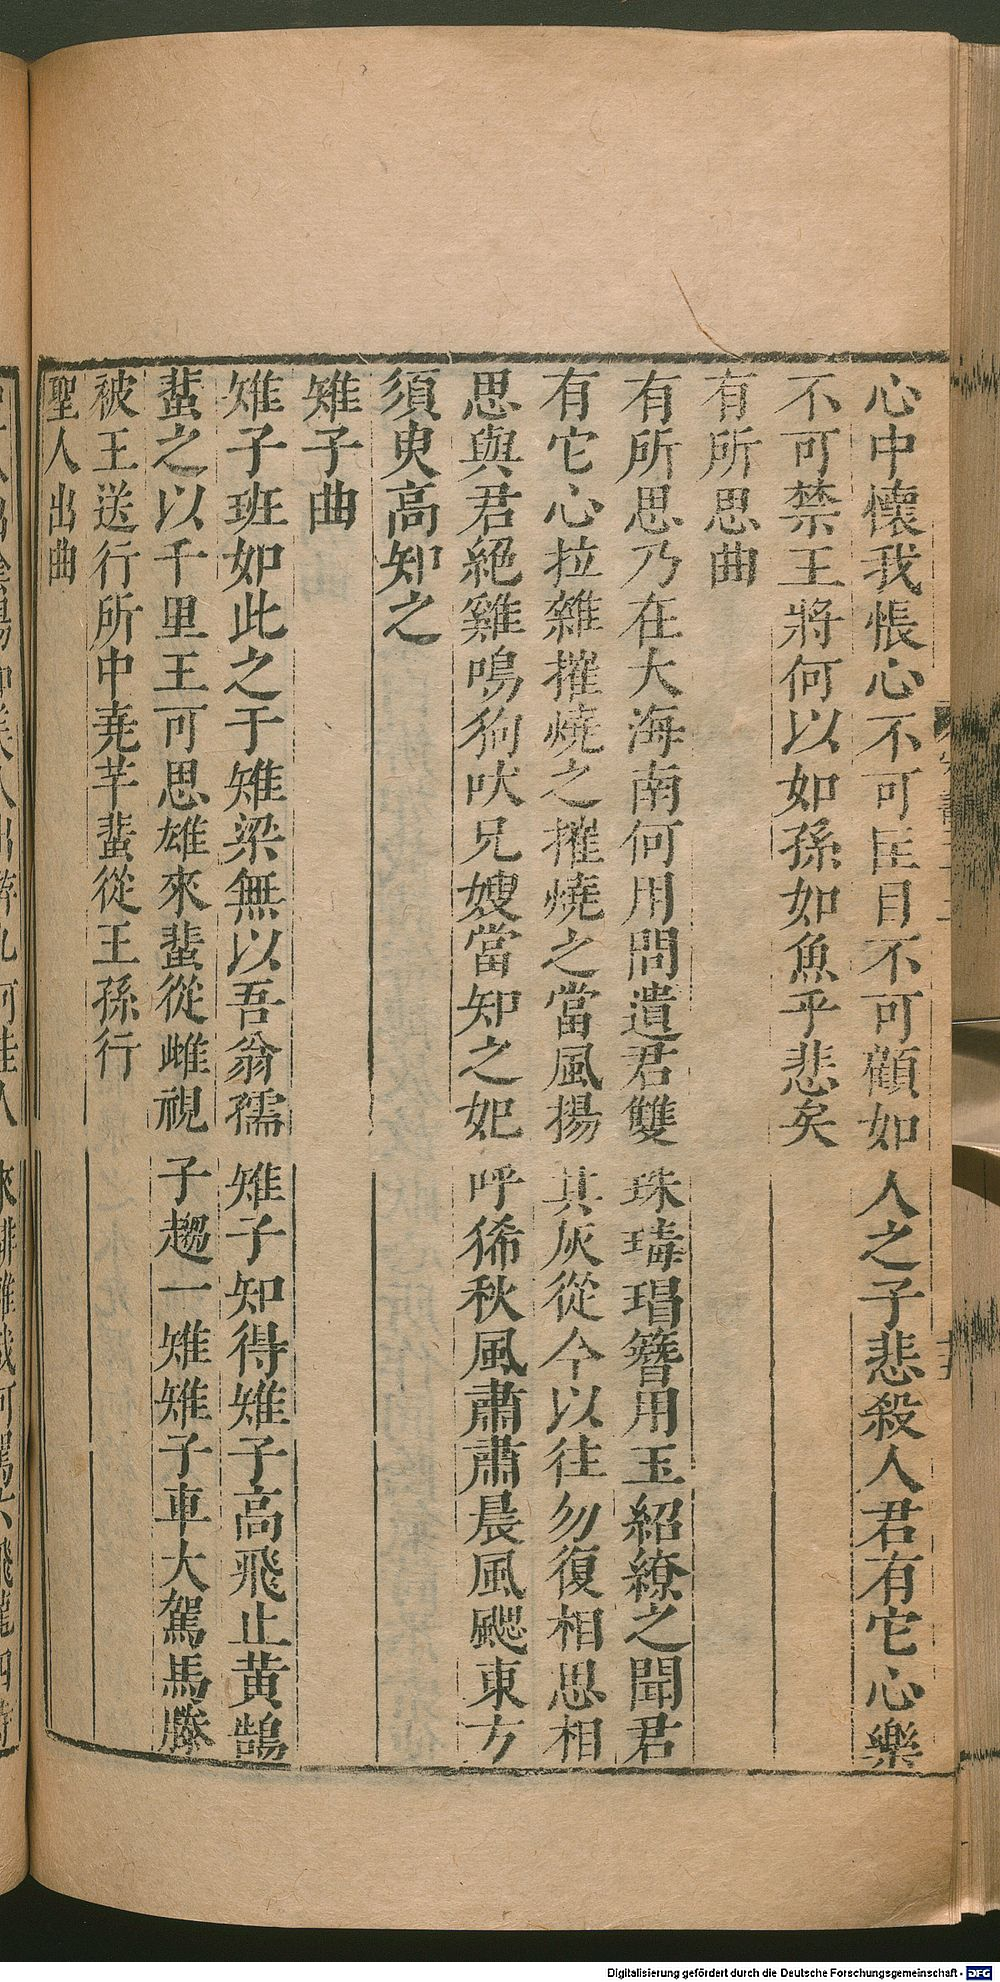 心中懷我悵心不可匡目不可顧如人之子悲殺人君有它心樂
不可禁王將何以如孫如魚乎悲矣
有所思曲
有所思乃在大海南何用問遺君雙珠瑇瑁簪用玉紹繚之聞君
有它心拉雜摧燒之摧燒之當風揚其灰從今以往勿復相思相
思與君絕雞鳴狗吠兄嫂當知之妃呼狶秋風肅肅晨風颸東方
須臾高知之
雉子曲
雉子班如此之于雉梁無以吾翁孺雉子知得雉子高飛止黃鵠
蜚之以千里王可思雄來蜚從雌視子趨一雉雉子車大駕馬滕
被王送行所中堯芉蜚從王孫行
聖人出曲
Digitalisierung gefördert durch die Deutsche Forschungsgemeinschaft - DFG